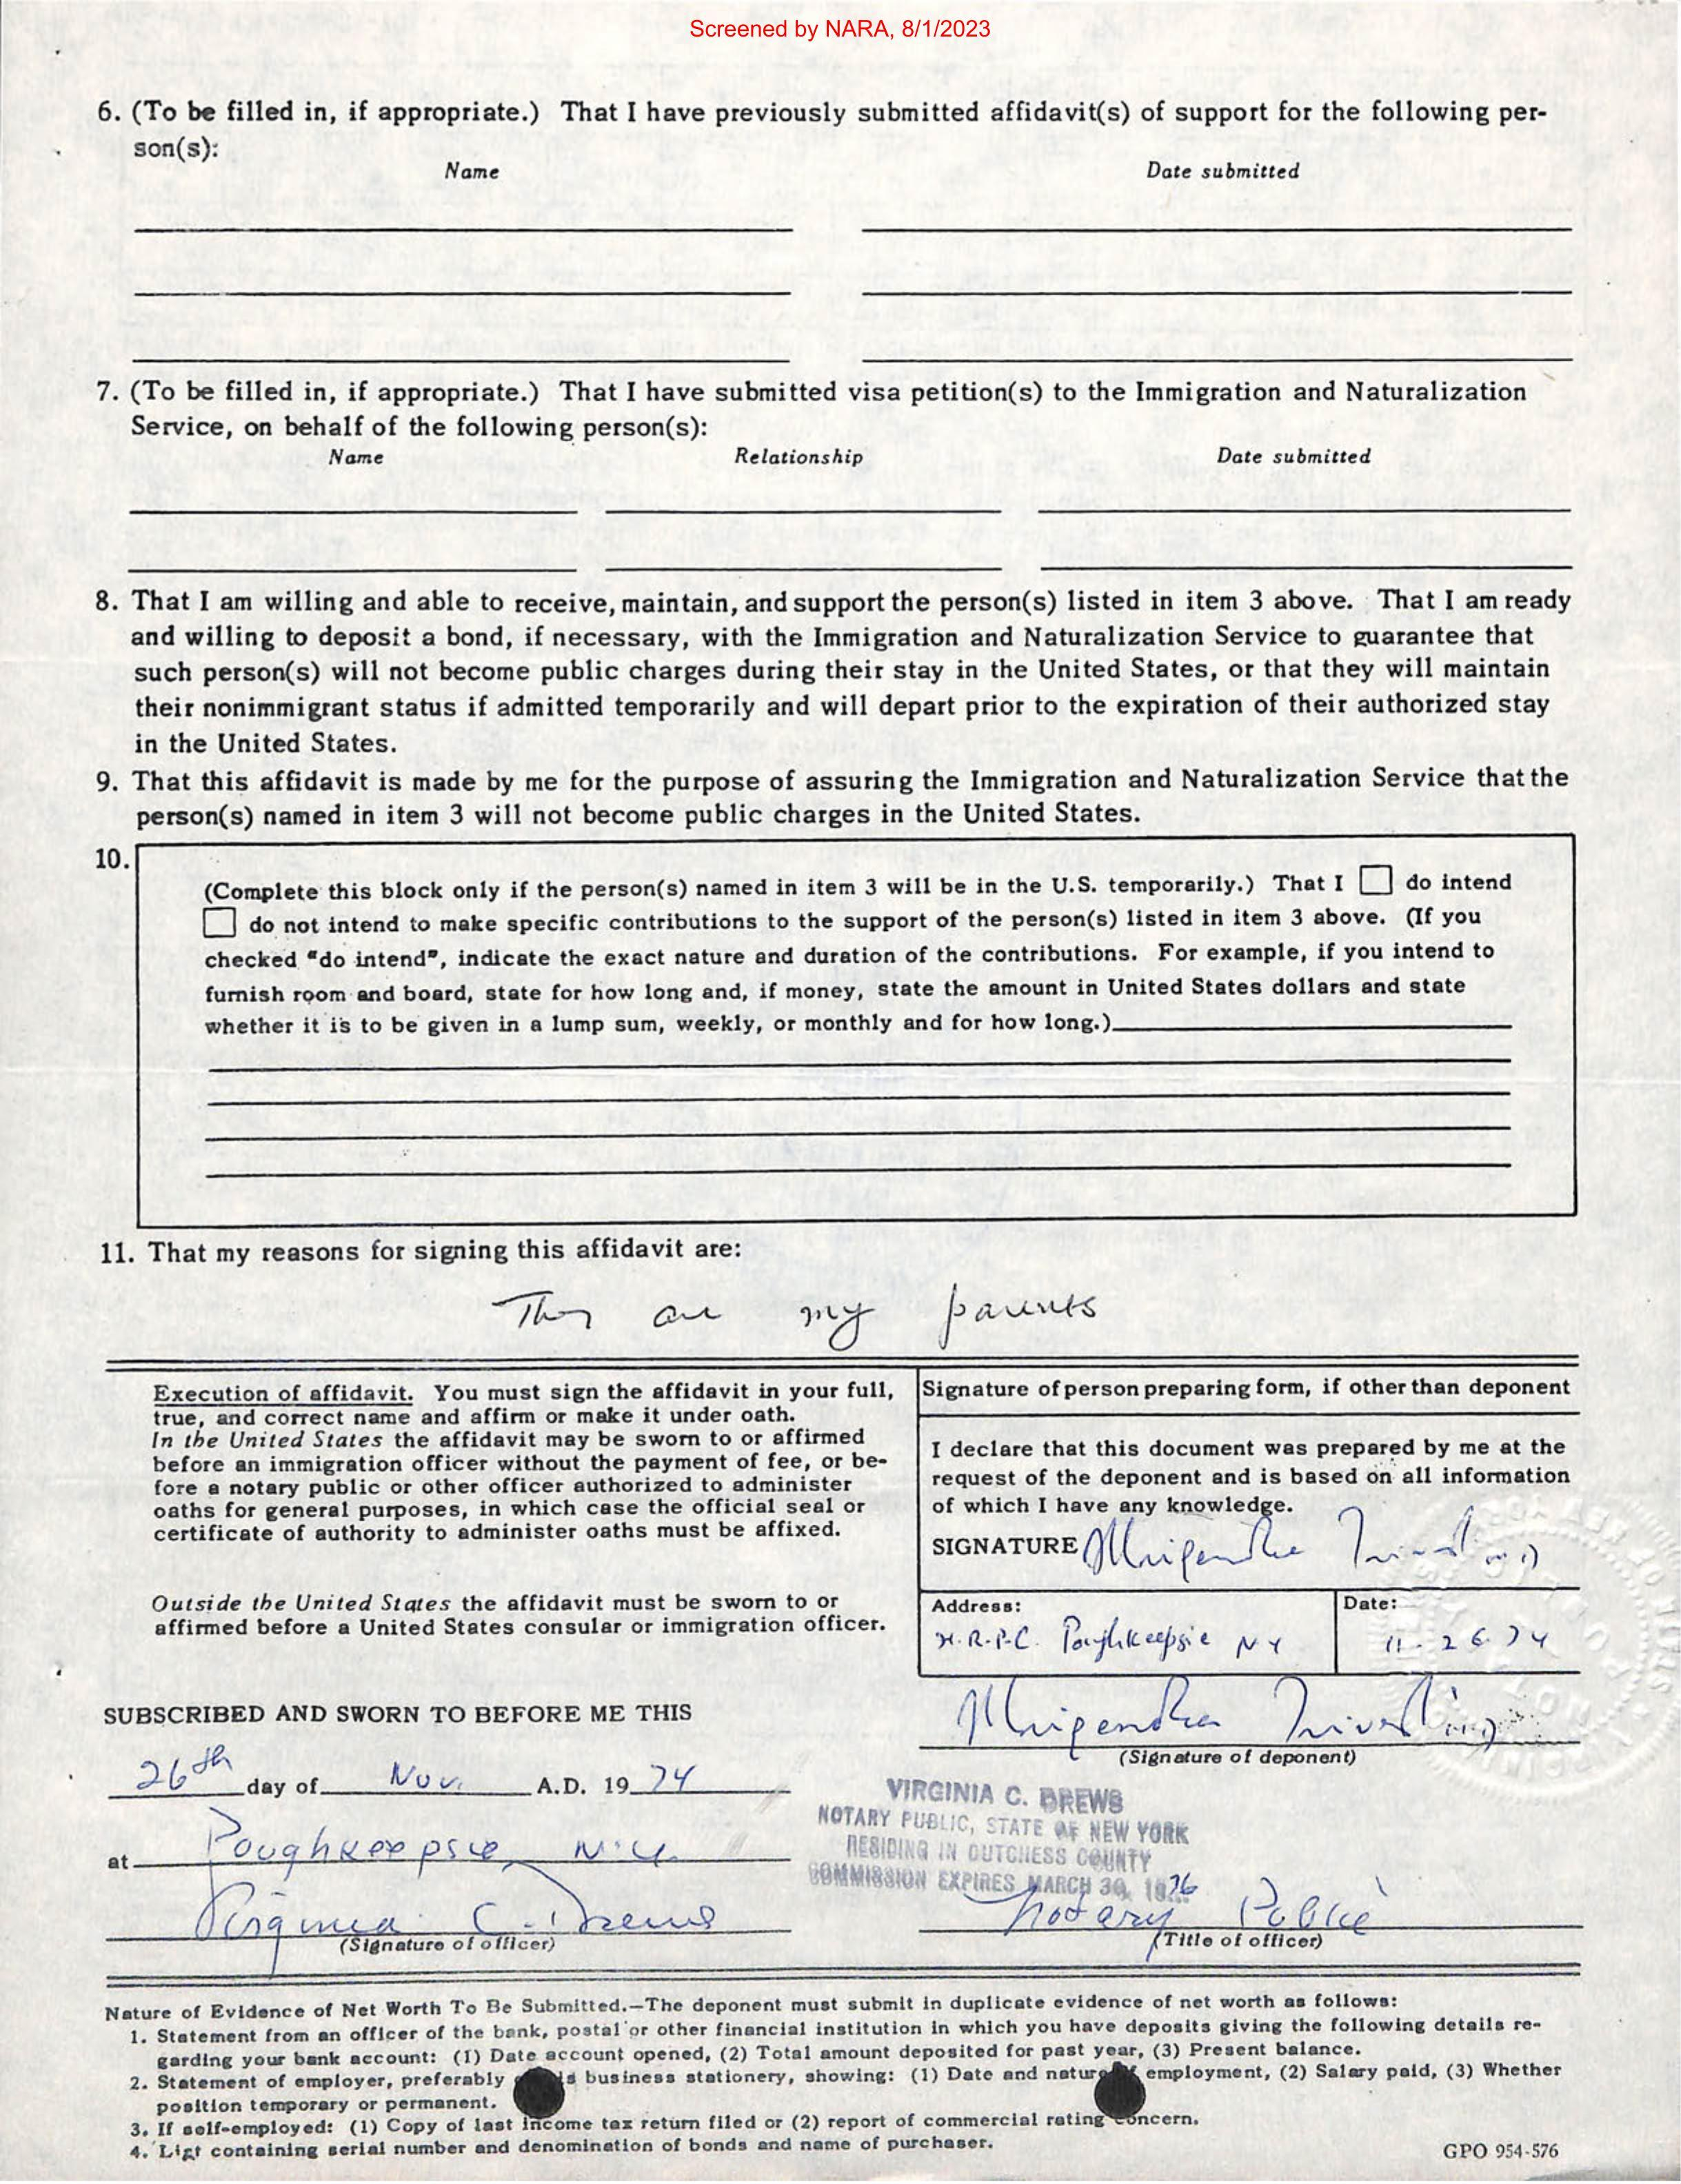 Screened by NARA, 8/1/2023
6. (To be filled in, if appropriate.) That I have previously submitted affidavit(s) of support for the following per-
son(s):
Name Date submitted
7. (To be filled in, if appropriate.) That I have submitted visa petition(s) to the Immigration and Naturalization
Service, on behalf of the following person(s):
Name Relationship Date submitted
8. That I am willing and able to receive, maintain, and support the person(s) listed in item 3 above. That I am ready
and willing to deposit a bond, if necessary, with the Immigration and Naturalization Service to guarantee that
such person(s) will not become public charges during their stay in the United States, or that they will maintain
their nonimmigrant status if admitted temporarily and will depart prior to the expiration of their authorized stay
in the United States.
9. That this affidavit is made by me for the purpose of assuring the Immigration and Naturalization Service that the
person(s) named in item 3 will not become public charges in the United States.
10.
(Complete this block only if the person(s) named in item 3 will be in the U.S. temporarily.) That I do intend
do not intend to make specific contributions to the support of the person(s) listed in item 3 above. (If you
checked "do intend", indicate the exact nature and duration of the contributions. For example, if you intend to
furnish room and board, state for how long and, if money, state the amount in United States dollars and state
whether it is to be given in a lump sum, weekly, or monthly and for how long.)
11. That my reasons for signing this affidavit are:
They are my parents
Execution of affidavit. You must sign the affidavit in your full,
true, and correct name and affirm or make it under oath.
In the United States the affidavit may be sworn to or affirmed
before an immigration officer without the payment of fee, or be-
fore a notary public or other officer authorized to administer
oaths for general purposes, in which case the official seal or
certificate of authority to administer oaths must be affixed.
Outside the United States the affidavit must be sworn to or
affirmed before a United States consular or immigration officer.
Signature of person preparing form, if other than deponent
I declare that this document was prepared by me at the
request of the deponent and is based on all information
of which I have any knowledge.
SIGNATURE Mrigendra
Address: Date:
H.R.P.C. Poughkeepsie NY 11-26-74
SUBSCRIBED AND SWORN TO BEFORE ME THIS
Mrigendra
(Signature of deponent)
26th day of Nov. A.D. 19 74
at Poughkeepsie, N.Y.
VIRGINIA C. DREWS
NOTARY PUBLIC, STATE OF NEW YORK
RESIDING IN DUTCHESS COUNTY
COMMISSION EXPIRES MARCH 30, 1976
Virginia C. Drews Notary Public
(Signature of officer) (Title of officer)
Nature of Evidence of Net Worth To Be Submitted.—The deponent must submit in duplicate evidence of net worth as follows:
1. Statement from an officer of the bank, postal or other financial institution in which you have deposits giving the following details re-
garding your bank account: (1) Date account opened, (2) Total amount deposited for past year, (3) Present balance.
2. Statement of employer, preferably business stationery, showing: (1) Date and nature employment, (2) Salary paid, (3) Whether
position temporary or permanent.
3. If self-employed: (1) Copy of last income tax return filed or (2) report of commercial rating concern.
4. List containing serial number and denomination of bonds and name of purchaser.
GPO 954-576